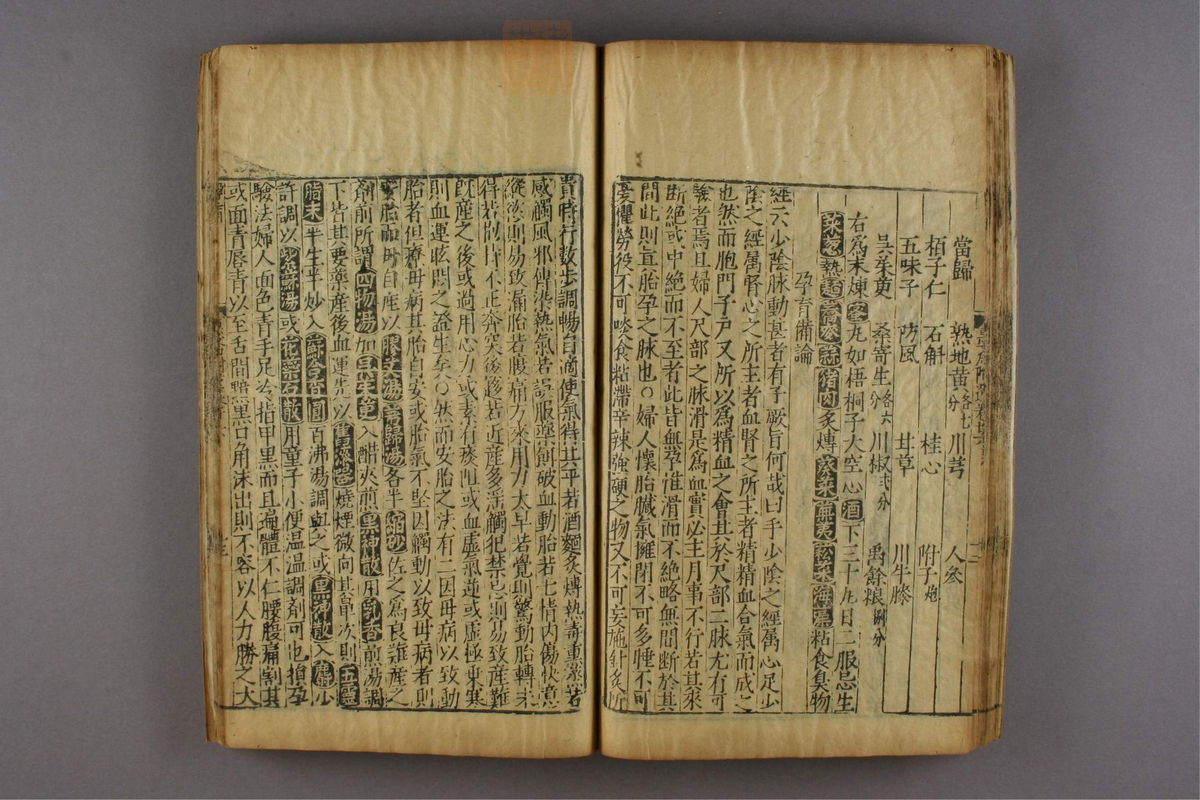 當歸 熟地黃各七分 川芎 人參
栢子仁 石斛 桂心 附子炮
五味子 防風 甘草 川牛膝
吳茱萸 桑寄生各六分 川椒弍分 禹餘粮捌分
右爲末煉蜜丸如梧桐子大空心酒下三十丸日二服忌生
菜葱熱 蒜猪肉炙煿葵菜蕪荑菘菜海藻粘食臭物
孕育備論
經云少陰脉動甚者有子厥旨何哉曰手少陰之經屬心足少
陰之經屬腎心之所主者血腎之所主者精精血合氣而成之
也然而胞門子戶又所以爲精血之會其於尺部二脉尤有可
驗者焉且婦人尺部之脉滑是爲血實必主月事不行若其來
斷絶或中絶而不至者此皆無孕惟滑而不絶略無間斷於其
間此則眞胎孕之脉也〇婦人懷胎臟氣擁閉不可多睡不可
憂懼勞役不可啖食粘滯辛辣強硬之物又不可妄施針灸所
貴時行散步調暢自適使氣得其平若酒麵炙煿熱毒熏蒸若
感觸風邪傳染熱氣若誤服藥餌破血動胎若七情內傷快意
縱慾則易致漏胎若腹痛方來用力大早若覺則驚動胎轉未
得若抱持不正奔突後逡若近產多淫觸犯禁忌則易致產難
旣產之後或過用心力或素有痰阻或血虛氣逆或虛極束寒
則血運眩悶之證生矣〇然而安胎之法有二因母病以致動
胎者但療母病其胎自安或胎氣不堅因觸動以致母病者則
安胎而母自產以膠艾湯當歸湯各半縮砂佐之爲良難產之
劑前所謂四物湯加 入醋火煎黑神散用乳香煎湯調
下皆其要藥產後血運先以 燒煙微向其鼻次則五靈
脂末半生半炒入 圓百沸湯調與之或黑神散入麝少
許調以 湯或花蘂石散用童子小便溫溫調劑可也損孕
驗法婦人面色青手足冷指甲黑而且遍體不仁腰腹痛割甚
或面青唇青以至舌間黯黑口角沫出則不容以人力勝之大